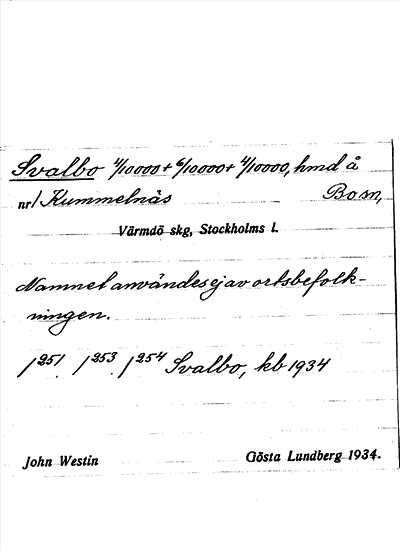 Svalbo 4/10000 + 6/10000 + 4/10000, hmd å
nr 1 Kummelnäs Bo sn,
Värmdö skg, Stockholms l.
Namnet användes ej av ortsbefolk-
ningen.
1 251. 1 253. 1 254 Svalbo, kb 1934
John Westin Gösta Lundberg 1934.